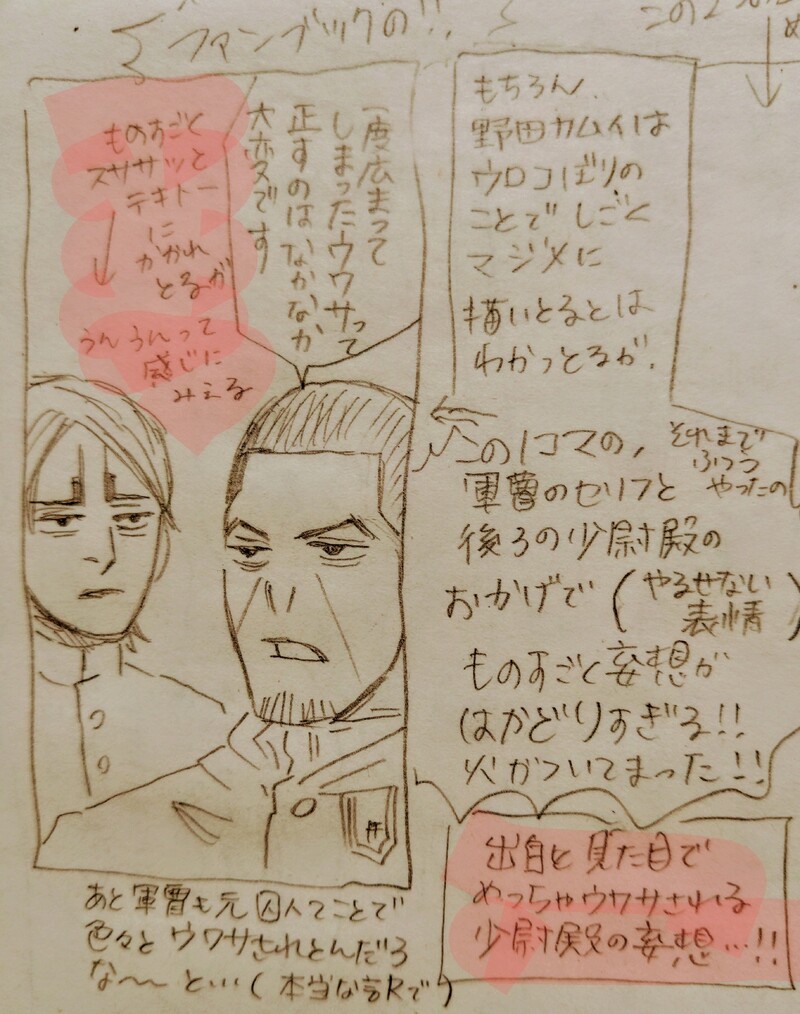 ファンブックの!!
この
もちろん、
野田カムイは
ウロコぼりの
ことで しごく
マジメに
描いとるとは
わかっとるが、
一度広まって
しまったウワサって
正すのはなかなか
大変です
ものすごく
スササッと
テキトー
に
かかれ
とるが
うんうんって
感じに
みえる
この1コマの、
軍曹のセリフと
後ろの少尉殿の
おかげで(やるせない
表情)
それまで
ふつう
やったの
ものすごく妄想が
はかどりすぎる!!
火がついてまった!!
出自と見た目で
めっちゃウワサされる
少尉殿の妄想…!!
あと軍曹も元囚人てことで
色々とウワサされとんだろ
な〜〜と…(本当な訳で)